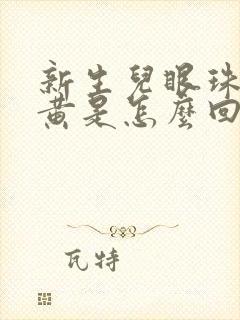 新生兒眼珠
黃是怎麼回
瓦特